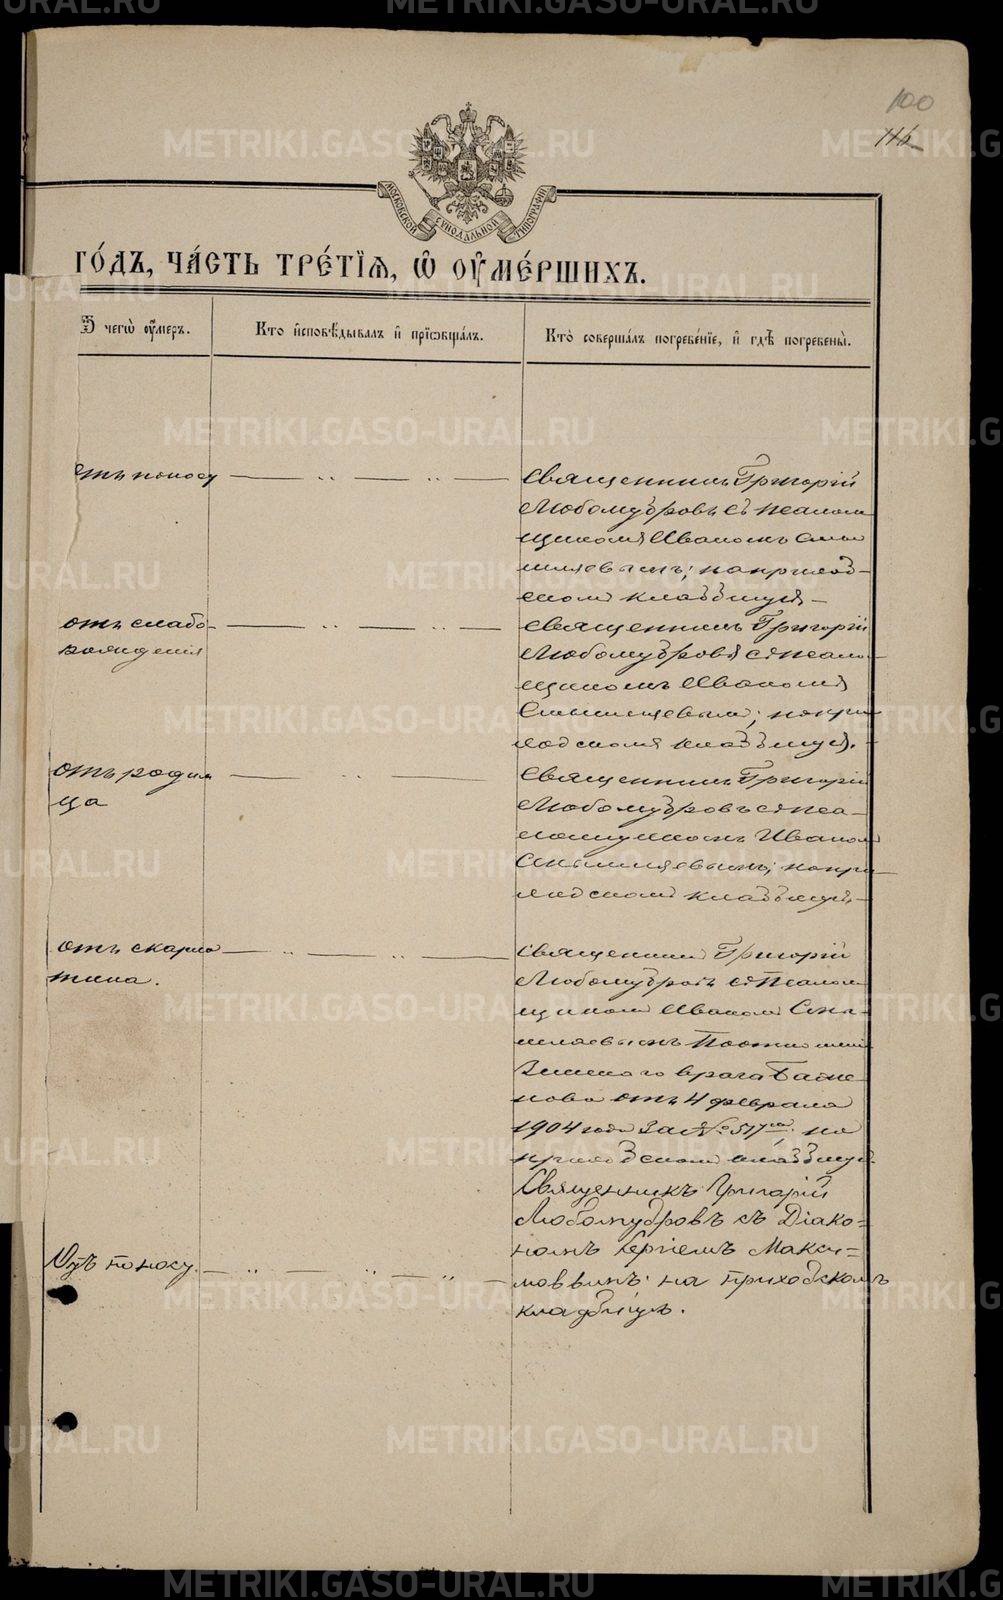 100
116
МОСКОВСКОЙ СѴНОДАЛЬНОЙ ТИПОГРАФІИ
ГО́ДЪ, ЧА́СТЬ ТРЕ́ТІѦ, Ѡ҆ ОУ҆МЕ́РШИХЪ.
Ѿ чегѡ̀ оу҆́меръ.
Кто̀ и҆сповѣ́дывалъ и҆ прїѡбща́лъ.
Кто̀ соверша́лъ погребе́нїе, и҆ гдѣ̀ погребены̀.
отъ поносу
Священникъ Григорій
Любомудровъ съ псалом
щикомъ Иваномъ Смы
шляевымъ; на приход-
скомъ кладбищѣ.-
отъ слабо-
рожденія
Священникъ Григорій
Любомудровъ съ псалом
щикомъ Иваномъ
Смышляевымъ; на при
ходскомъ кладбищѣ.-
отъ родим
ца
Священникъ Григорій
Любомудровъ съ пса-
ломщикомъ Иваном
Смышляевымъ; на при
ходскомъ кладбищѣ.-
отъ скарла
тина.
Священникъ Григорій
Любомудровъ съ псалом
щикомъ Иваномъ Смы-
шляевымъ
врача
отъ 4 февраля
1904 года за № 517 на
приходскомъ кладбищѣ
Отъ поносу.
Священникъ Григорій
Любомудровъ съ Діако-
номъ Сергіемъ Макси-
мовымъ на приходскомъ
кладбищѣ.
METRIKI.GASO-URAL.RU